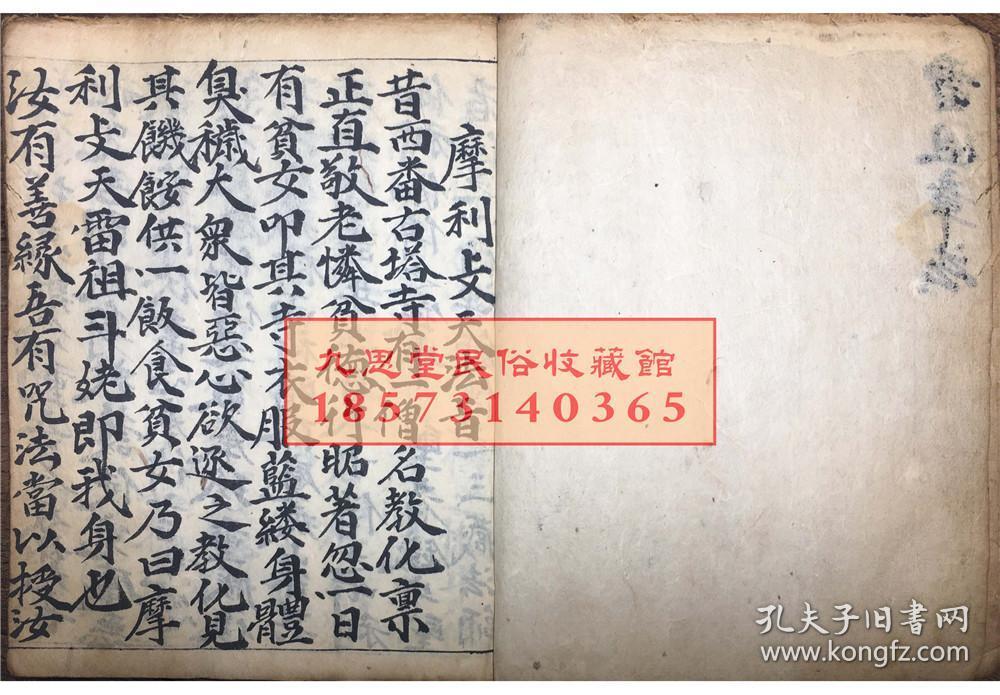 摩利攴天法旨
昔西番古塔寺有一僧名教化禀
正直敬老憐貧德行昭著忽一日
有貧女叩其寺衣服藍縷身體
臭穢大衆皆惡心欲逐之教化見
其饑餒供一飯食貧女乃曰摩
利攴天雷祖斗姥即我身也
汝有善緣吾有咒法當以授汝
九思堂民俗收藏館
18573140365
孔夫子旧书网
www.kongfz.com